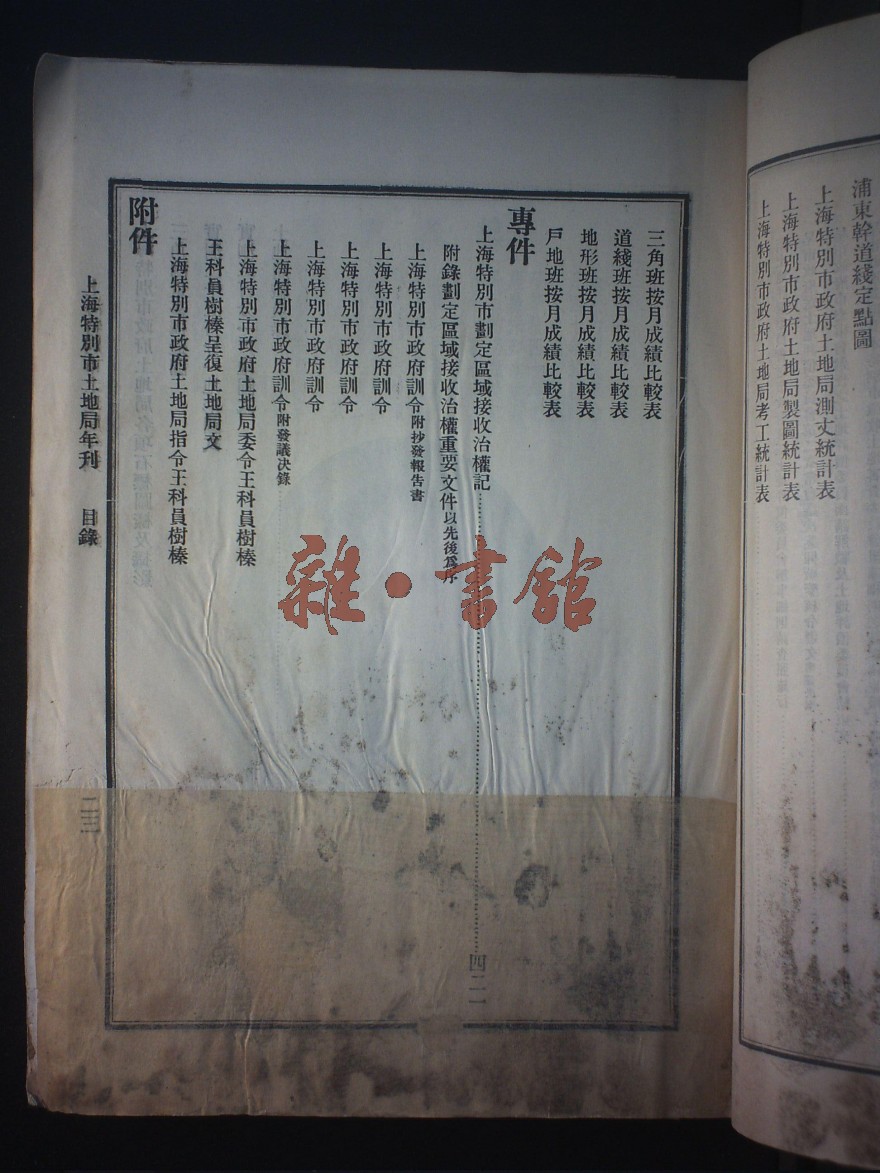 浦東幹道綫定點圖
上海特別市政府土地局測丈統計表
上海特別市政府土地局製圖統計表
上海特別市政府土地局考工統計表
三角班按月成績比較表
道綫班按月成績比較表
地形班按月成績比較表
戶地班按月成績比較表
專件
上海特別市劃定區域接收治權記……四二一
附錄劃定區域接收治權重要文件以先後爲序
上海特別市政府訓令附抄發報告書
上海特別市政府訓令
上海特別市政府訓令
上海特別市政府訓令
上海特別市政府訓令附發議决錄
上海特別市政府土地局委令王科員樹榛
王科員樹榛呈復土地局文
上海特別市政府土地局指令王科員樹榛
附件
上海特別市土地局年刊 目錄
二三
雜·書館